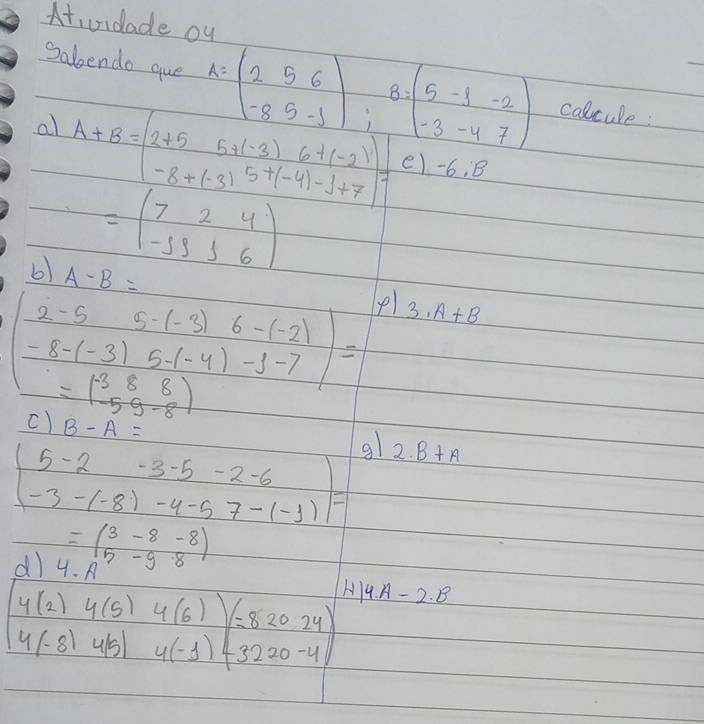 Atividade 04
Sabendo que A= (2 5 6
-8 5 -1) ; B= (5 -1 -2
-3 -4 7) calcule:
a) A+B = (2+5 5+(-3) 6+(-2)
-8+(-3) 5+(-4) -1+7) =
= (7 2 4
-11 1 6)
b) A-B =
(2-5 5-(-3) 6-(-2)
-8-(-3) 5-(-4) -1-7) =
= (-3 8 8
-5 9 -8)
c) B-A =
(5-2 -3-5 -2-6
-3-(-8) -4-5 7-(-1)) =
= (3 -8 -8
5 -9 8)
d) 4.A
(4(2) 4(5) 4(6)
4(-8) 4(5) 4(-1)) (=8 20 24
-32 20 -4)
e) -6.B
f) 3.A+B
g) 2.B+A
H) 4.A - 2.B